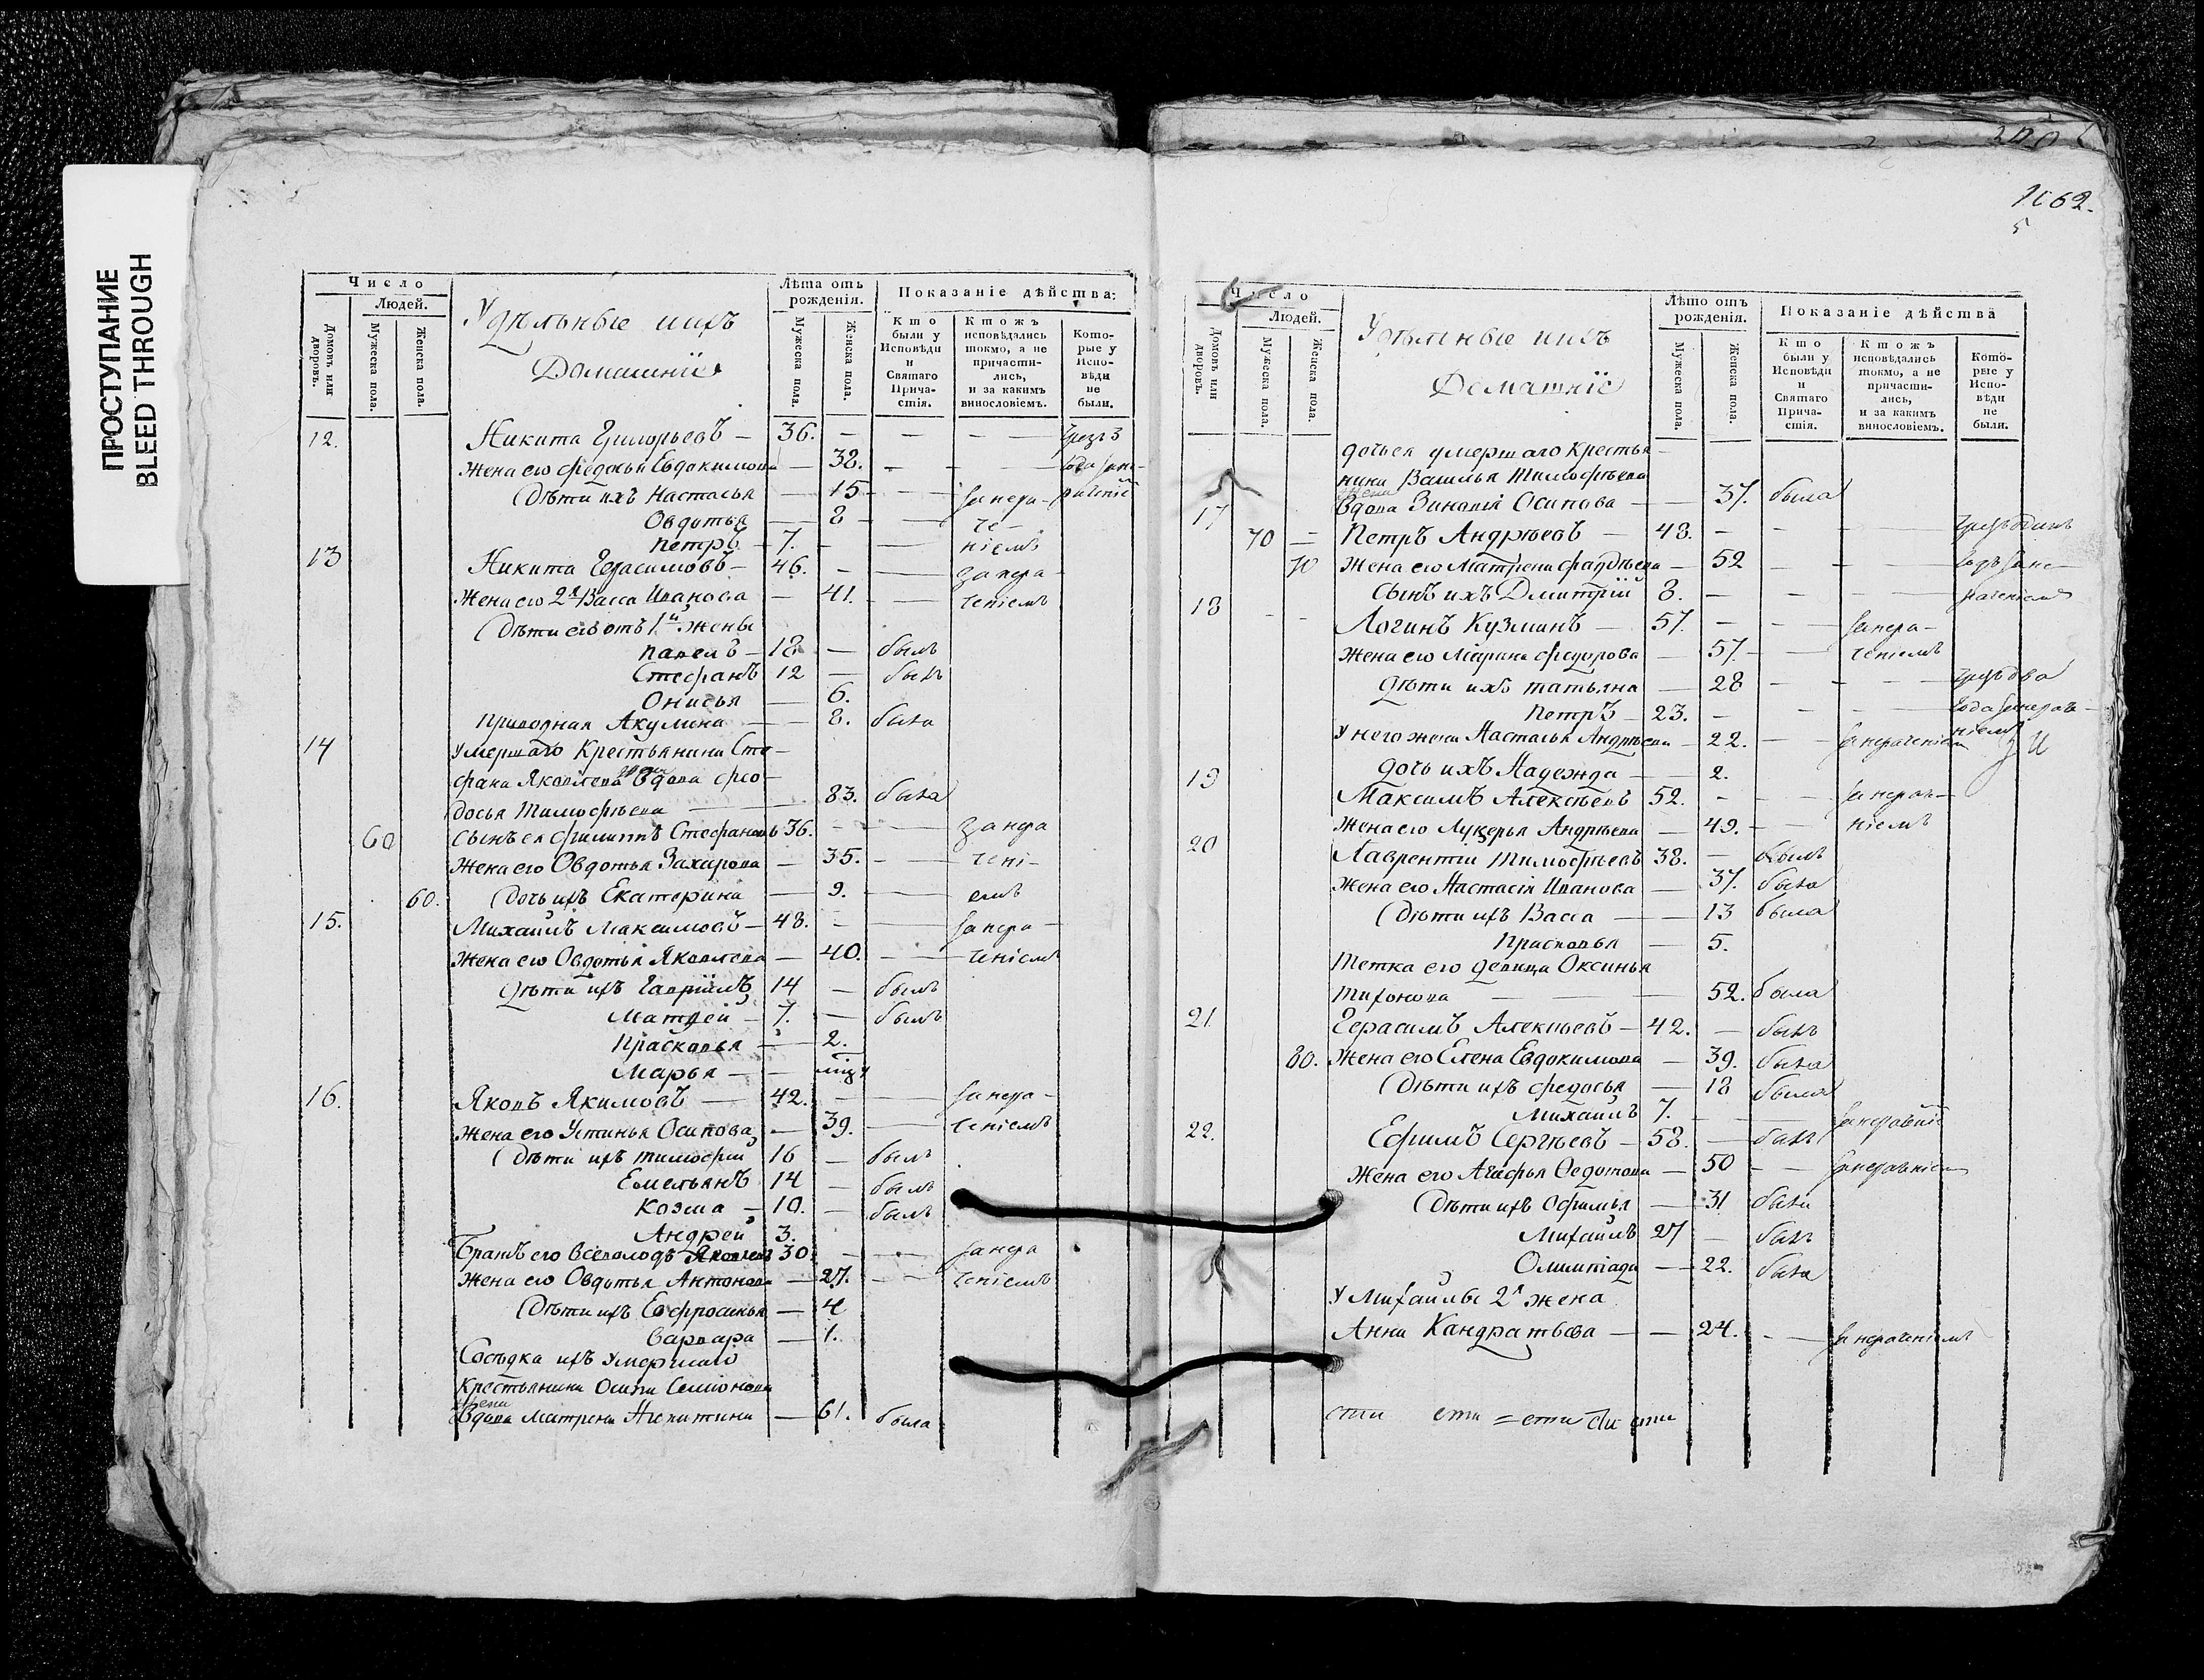 ПРОСТУПАНИЕ
BLEED THROUGH
Число
Людей.
Домовъ или дворовъ.
Мужеска пола.
Женска пола.
Удѣльные ихъ
Домашнїе
Лѣта отъ рождения.
Мужеска пола.
Женска пола.
Показаніе дѣйства:
Кто были у Исповѣди и Святаго Причастія.
Ктожъ исповѣдались токмо, а не причастились, и за какимъ винословіемъ.
Которые у Исповѣди не были.
12. Никита Григорьевъ — 36. — — — чрезъ 3
Жена его Федосья Евдокимова — 32. — —
Дѣти ихъ Настасья — 15 — — за нера-
Овдотья — 8 — — че-
Петръ — 7. — — ніемъ
13 Никита Герасимовъ — 46. — — за нера-
Жена его 2я Васса Иванова — 41. — — ченіемъ
Дѣти его отъ 1й жены
Павелъ — 18 — былъ
Стефанъ 12 — былъ
Онисья — 6.
Приводная Акулина — — 8. была
14 Умершаго Крестьянина Сте-
фана Яковлева вдова Фео-
досья Тимофѣева — 83. была
60 Сынъ ея Филиппъ Стефановъ 36. — — за нера
Жена его Овдотья Захарова — 35. — — чені-
60. Дочь ихъ Екатерина — 9. — — емъ
15. Михаилъ Максимовъ — 48. — — за нера-
Жена его Овдотья Яковлева — 40. — — ченіемъ
Дѣти ихъ Гаврїилъ 14 — былъ
Матвей — 7. — былъ
Прасковья — 2.
Марья — —
16. Яковъ Якимовъ — 42. — — за нера-
Жена его Устинья Осипова — 39. — — ченіемъ
Дѣти ихъ Тимофей 16 — былъ
Емельянъ 14 — былъ
Козма — 10. — былъ
Андрей 3.
Братъ его Всеволодъ Яковлевъ 30. — — за нера
Жена его Овдотья Антонова — 27. — — ченіемъ
Дѣти ихъ Евфросинья — 4
Варвара — 1.
Сосѣдка ихъ умершаго
Крестьянина Осипа Семіонова
жена
Вдова Матрена Никитина — 61. была
1062.
5
Число
Людей.
Домовъ или дворовъ.
Мужеска пола.
Женска пола.
Удѣльные ихъ
Домашнїе
Лѣто отъ рожденія.
Мужеска пола.
Женска пола.
Показаніе дѣйства
Кто были у Исповѣди и Святаго Причастія.
Ктожъ исповѣдались токмо, а не причастились, и за какимъ винословіемъ.
Которые у Исповѣди не были.
умершаго Крестья-
нина Василья Тимофѣева
жена
Вдова Зиновія Осипова — 37. была
17
70 — Петръ Андрѣевъ — 48. — — — чрезъ одинъ
70 Жена его Матрена Фаддѣева — 52 — — — годъ за не-
Сынъ ихъ Дмитрїй 8. — — — раченіемъ
18 — — Логинъ Кузминъ — 57. — — за нера-
Жена его Марина Федорова — 57. — — ченіемъ
Дѣти ихъ Татьяна — 28 — — — чрезъ два
Петръ — 23. — — — года за нераче-
ніемъ
У него жена Настасья Андрѣева — 22. — за нераченіемъ
Дочь ихъ Надежда — — 2.
19 Максимъ Алексѣевъ 52. — — за нераче-
Жена его Лукерья Андрѣева — 49. — — ніемъ
20 Лаврентій Тимофѣевъ 38. — былъ
Жена его Настасія Иванова — 37. была
Дѣти ихъ Васса — — 13 была
Прасковья — 5.
Тетка его девица Оксинья
Тихонова — — — 52. была
21 Герасимъ Алексѣевъ — 42. — былъ
80. Жена его Елена Евдокимова — 39. была
Дѣти ихъ Федосья — 18 была
Михаилъ 7. — —
22. Ефимъ Сергѣевъ — 58. — былъ
Жена его Агафья Федотова — 50 — — за нераченіемъ
Дѣти ихъ Офимья — 31 была
Михаилъ 27 — былъ
Олимпіада — 22. была
У Михаилы 2я жена
Анна Кандратьева — — 24. — — за нераченіемъ